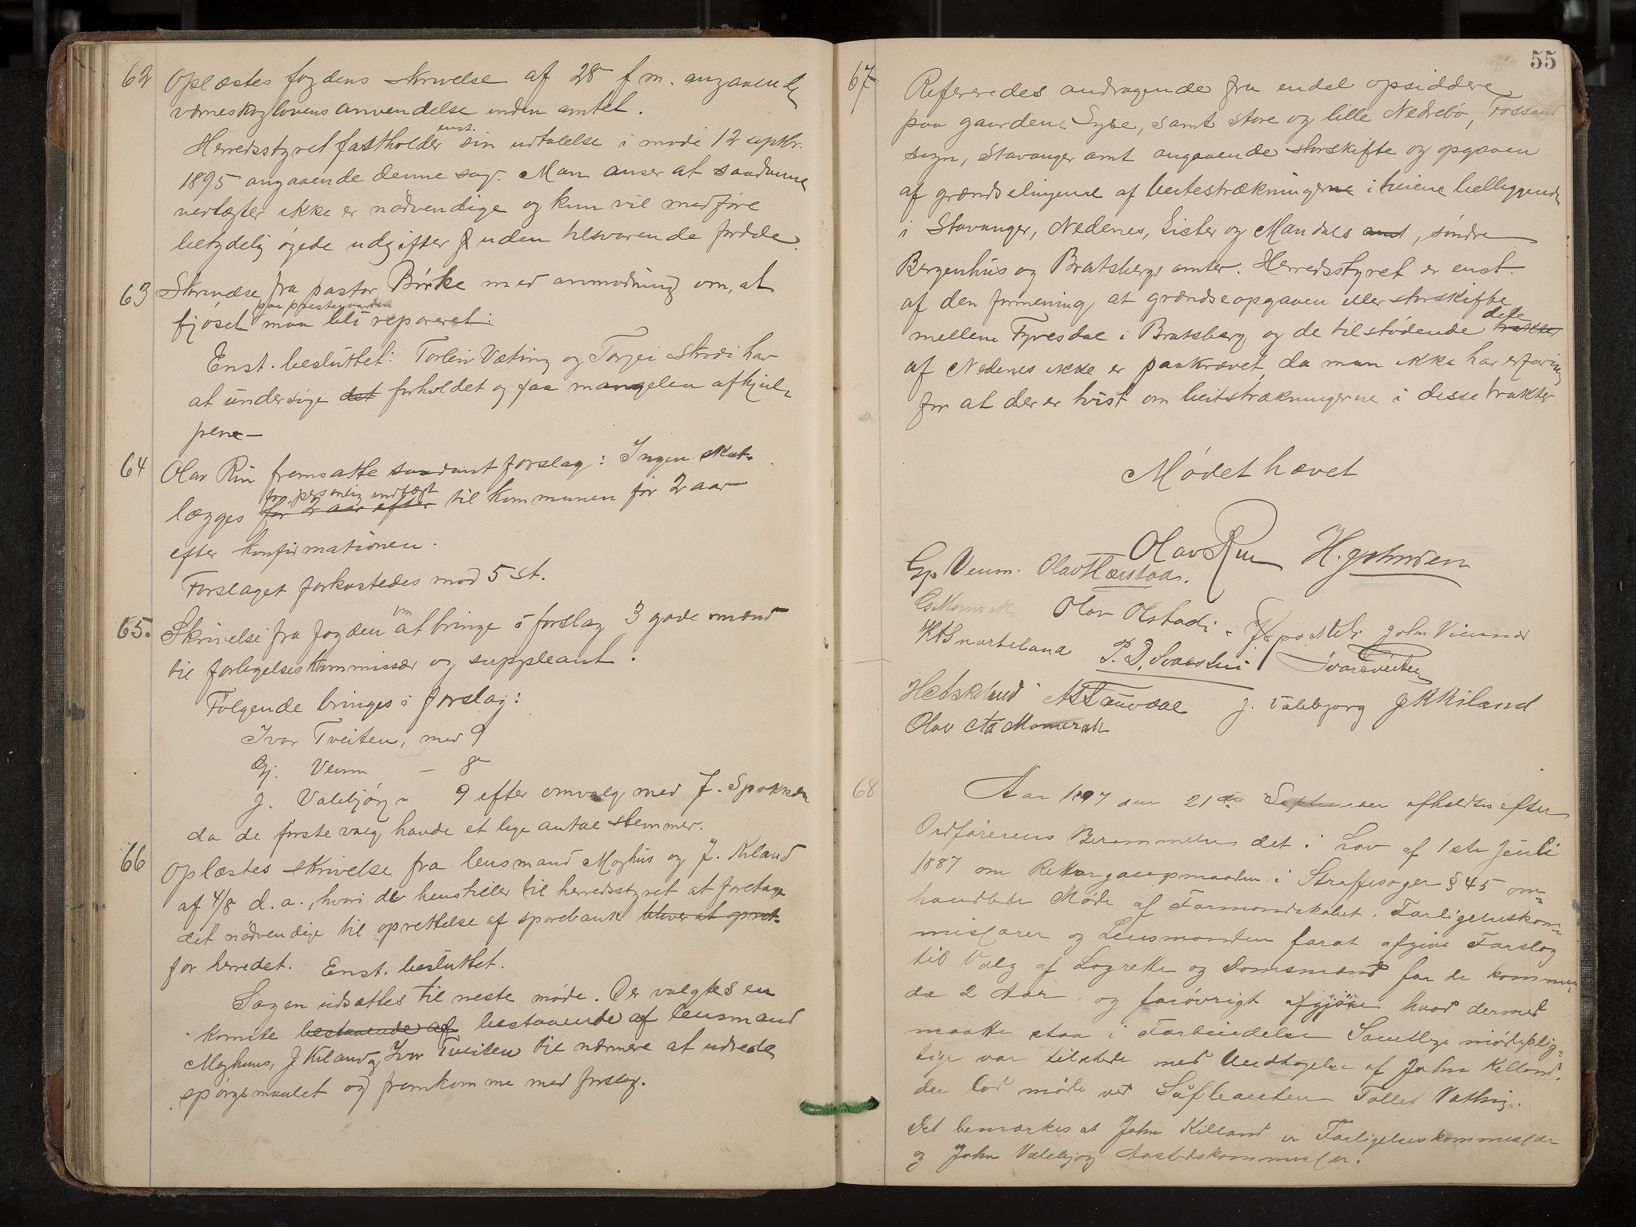 62 Oplæstes fogdens skrivelse af 28 f.m. angaaende
værneskoglovens anvendelse inden amtet.
Herredsstyret fastholder enst. sin udtalelse i møde 12 septbr.
1895 angaaende denne sag. Man anser at saadanne
vedtægter ikke er nødvendige og kun vil medføre
betydelig øgede udgifter uden tilsvarende fordele.
63 Skrivelse fra pastor Børke med anmodning om, at
fjøset paa præstegaarden maa bli repareret:
Enst. besluttet: Torleiv Væting og Torgei Skrodi har
at undersøge det forholdet og faa mangelen afhjul-
pene
64 Olav Rin fremsatte saadant forslag: Ingen skat
lægges for 2 aar efter for personlig indtægt til kommunen før 2 aar
efter konfirmationen.
Forslaget forkastedes mod 5 st.
65. Skrivelse fra fogden om at bringe i forslag 3 gode mænd
til forligelseskommissær og suppleant.
Følgende bringes i forslag:
Ivar Tveiten, med 9
Gj. Veum – 8
J. Valebjørg – 9 efter omvalg med J. Spokkeli
da de første valg havde et lige antal stemmer.
66 Oplæstes skrivelse fra lensmand Moghus og J. Kiland
af 4/8 d.a., hvori de henstiller til herredsstyret at foretage
det nødvendige til oprettelse af sparebank blive at opret.
for herredet. Enst. besluttet.
Sagen udsættes til neste møde. Der valgtes en
komite bestaaende af bestaaende af lensmand
Moghus, J Kiland og Ivar Tveiten til nærmere at udrede
spørgsmaalet og fremkomme med forslag.
55
67 Refereredes andragende fra endel opsiddere
paa gaardene samt store og lille Nedrebø, Fossand
sogn, Stavanger amt angaaende storskifte og opgaaen
af grændselinjerne af beitestrækningerne i heiene beliggende
i Stavanger, Nedenes, Lister og Mandals amt, søndre
Bergenhus og Bratsbergs amter. Herredsstyret er enst
af den formening, at grændseopgaaen eller storskifte
mellem Fyresdal i Bratsberg og de tilstødende trakter dele
af Nedenes ikke er paakrævet, da man ikke har erfaring
for at der er tvist om beitestrækningerne i disse trakter
Mødet hævet
Olav Rin H. Johnsen
Gj. Veum. Olav Hærstad.
GMomrak Olav Olstadi. John Vinand
KASnarteland P. D. Svadsli Ivar Tveiten
HAasklund ASTauvdal J. Valebjørg JKKiland
Olav Momrak
68 Aar 1897 den 21de September afholdtes efter
Ordførerens Berammelse det i Lov af 1ste Juli
1887 om Rettergangsmaaden i Straffesager § 45 om-
handlede Møde af Formandskabet, Forligelseskom-
missærer og Lensmanden forat afgive Forslag
til Valg af Lagrette og Domsmænd for de kommen-
de 2 Aar og forøvrigt afgjøre hvad dermed
maatte staa i Forbindelse. Samtlige mødeplig-
tige var tilstede med Undtagelse af John Killand,
der lod møde ved Supleanten Tollef Vathing.
Det bemærkes at John Killand er Forligelseskommissær
og John Valebjørg Aastedskommissær.